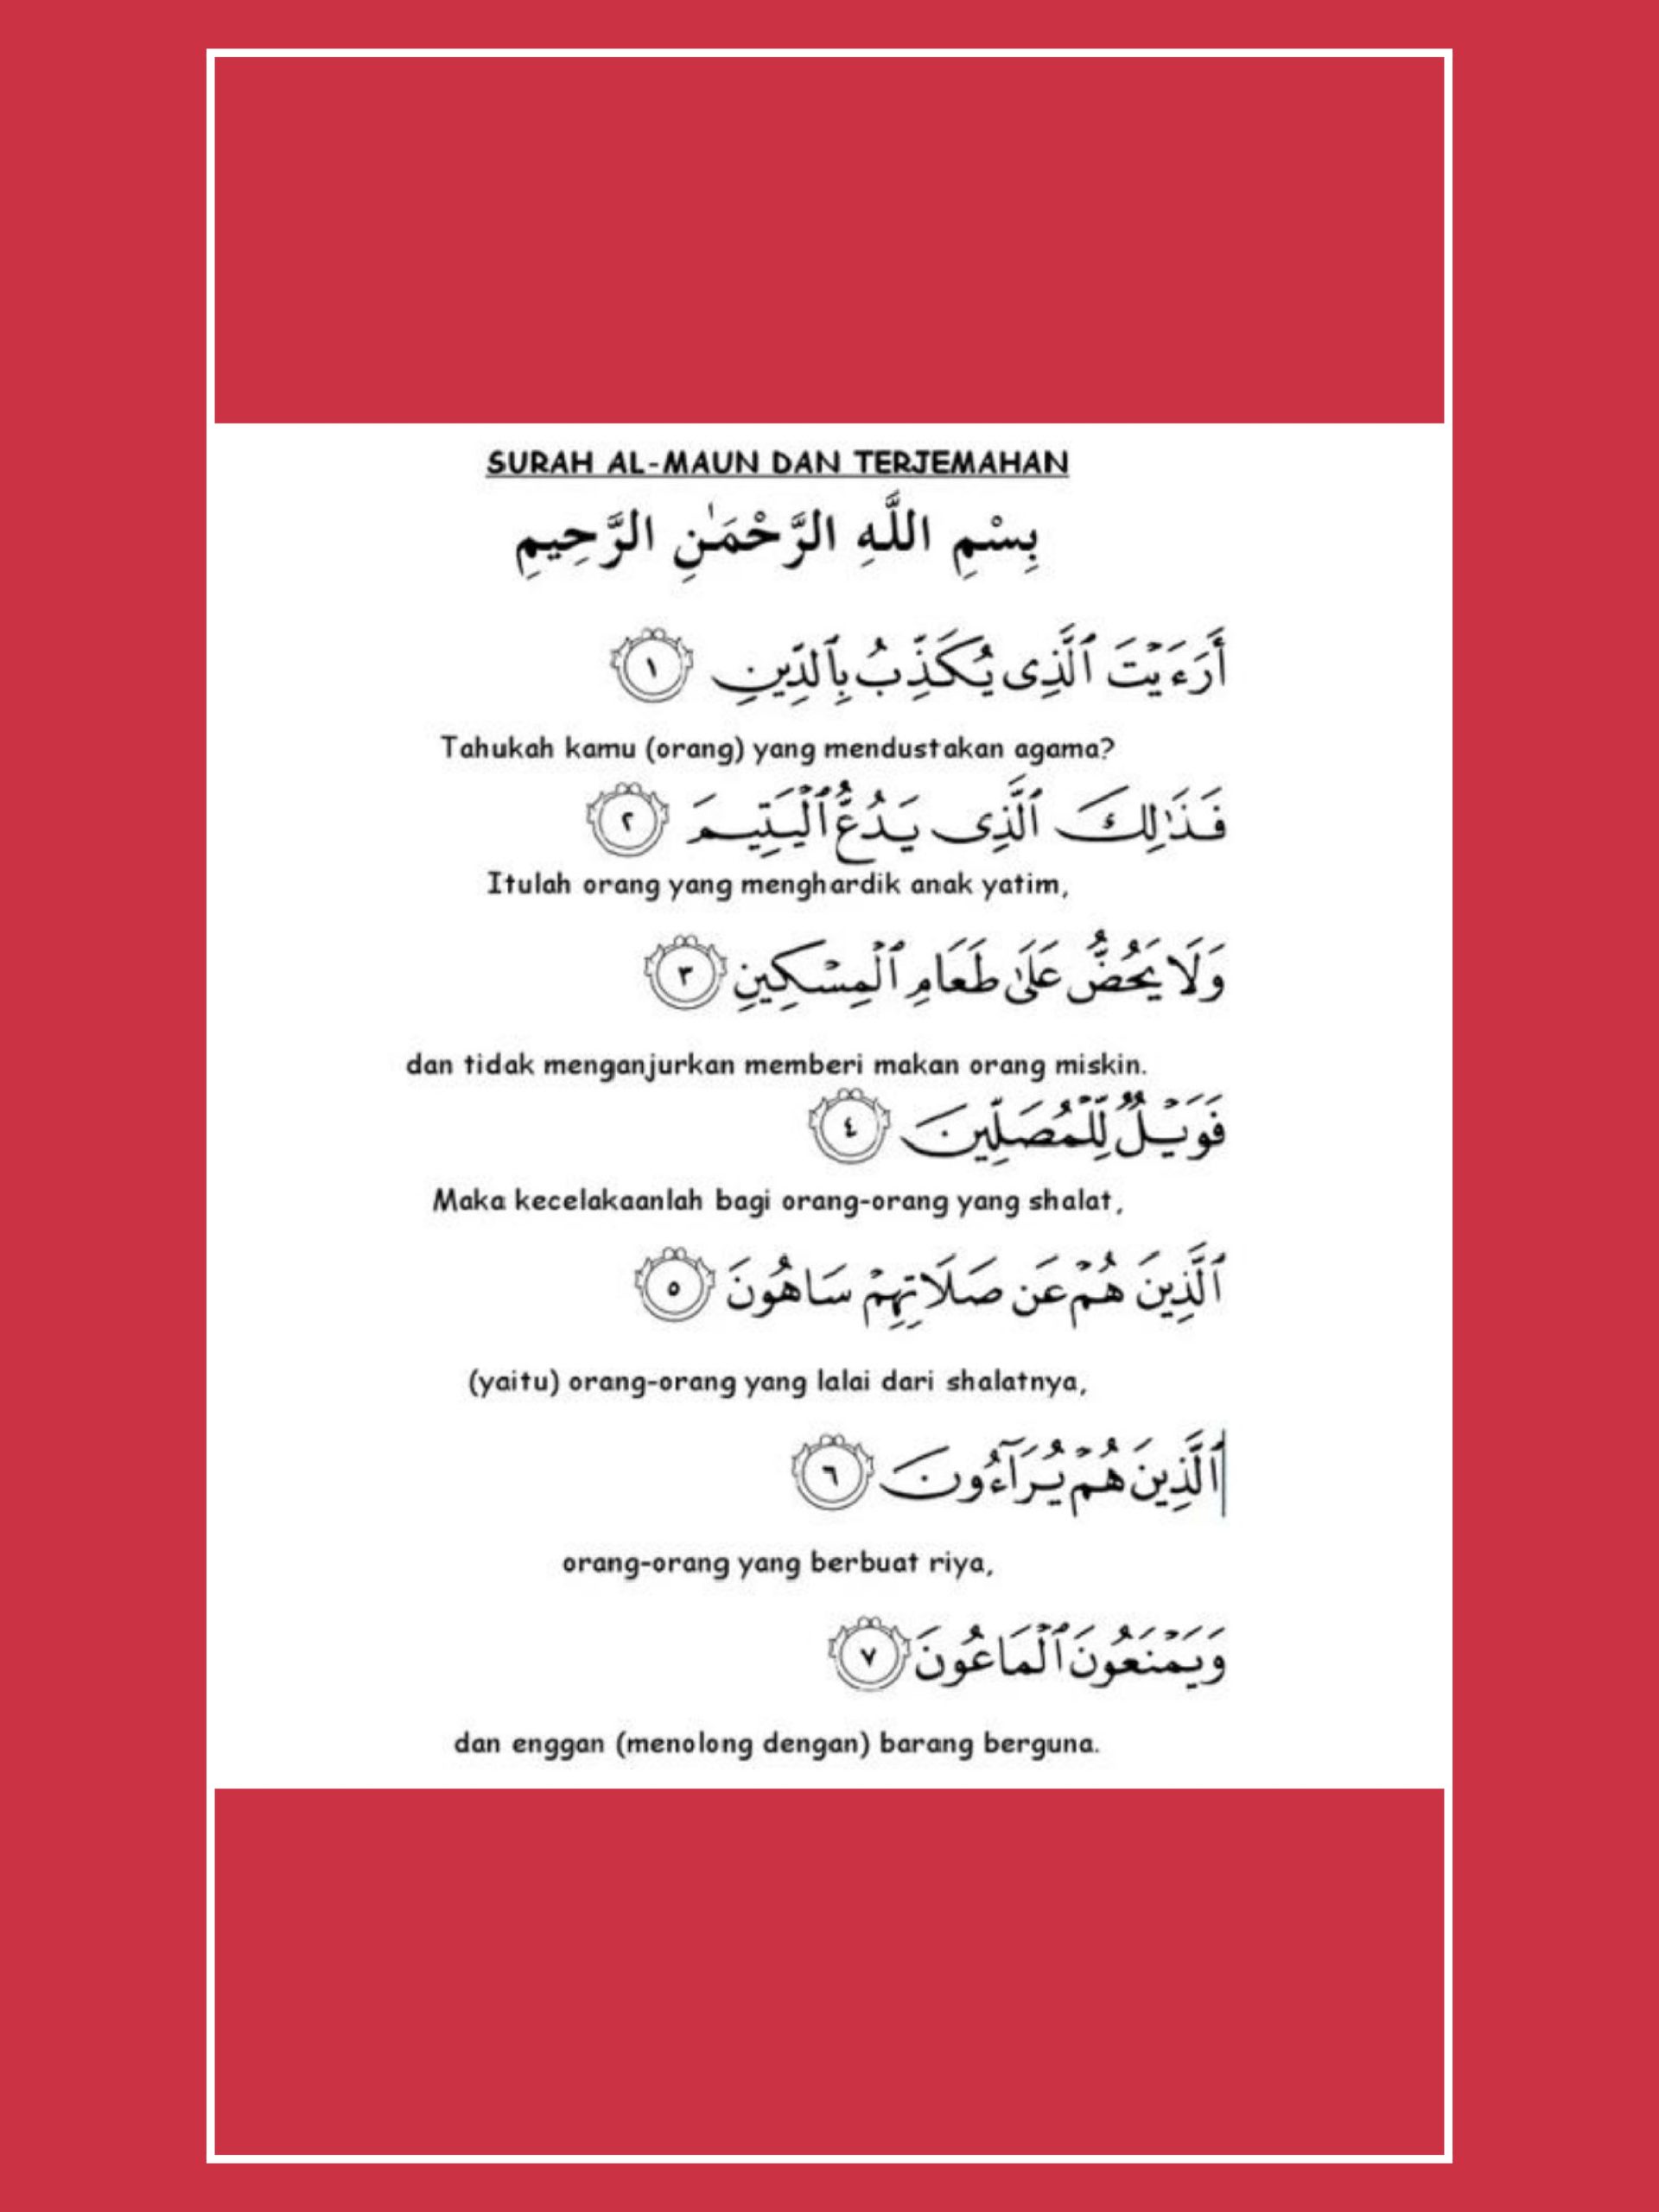 SURAH AL-MAUN DAN TERJEMAHAN
بِسْمِ اللَّهِ الرَّحْمَٰنِ الرَّحِيمِ
أَرَءَيْتَ ٱلَّذِى يُكَذِّبُ بِٱلدِّينِ ١
Tahukah kamu (orang) yang mendustakan agama?
فَذَٰلِكَ ٱلَّذِى يَدُعُّ ٱلْيَتِيمَ ٢
Itulah orang yang menghardik anak yatim,
وَلَا يَحُضُّ عَلَىٰ طَعَامِ ٱلْمِسْكِينِ ٣
dan tidak menganjurkan memberi makan orang miskin.
فَوَيْلٌ لِّلْمُصَلِّينَ ٤
Maka kecelakaanlah bagi orang-orang yang shalat,
ٱلَّذِينَ هُمْ عَن صَلَاتِهِمْ سَاهُونَ ٥
(yaitu) orang-orang yang lalai dari shalatnya,
ٱلَّذِينَ هُمْ يُرَآءُونَ ٦
orang-orang yang berbuat riya,
وَيَمْنَعُونَ ٱلْمَاعُونَ ٧
dan enggan (menolong dengan) barang berguna.